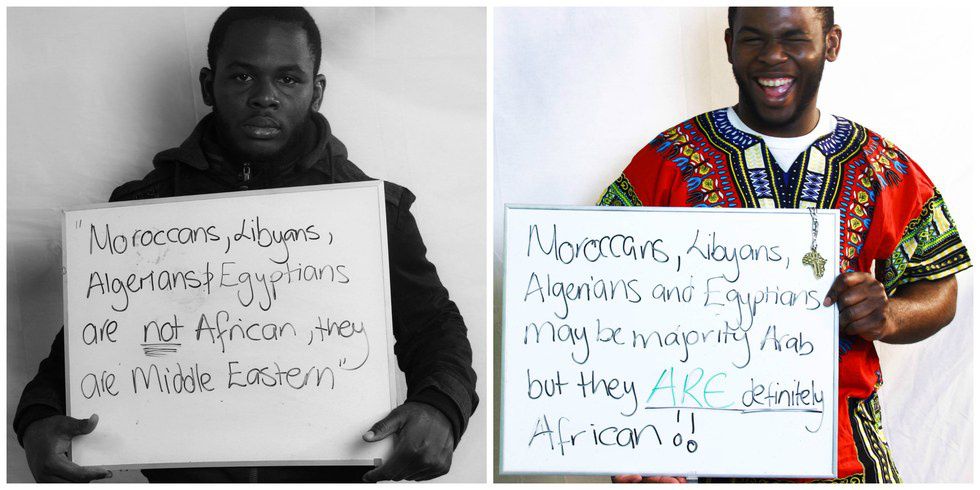 "Moroccans, Libyans,
Algerians & Egyptians
are not African, they
are Middle Eastern"
Moroccans, Libyans,
Algerians and Egyptians
may be majority Arab
but they ARE definitely
African !!